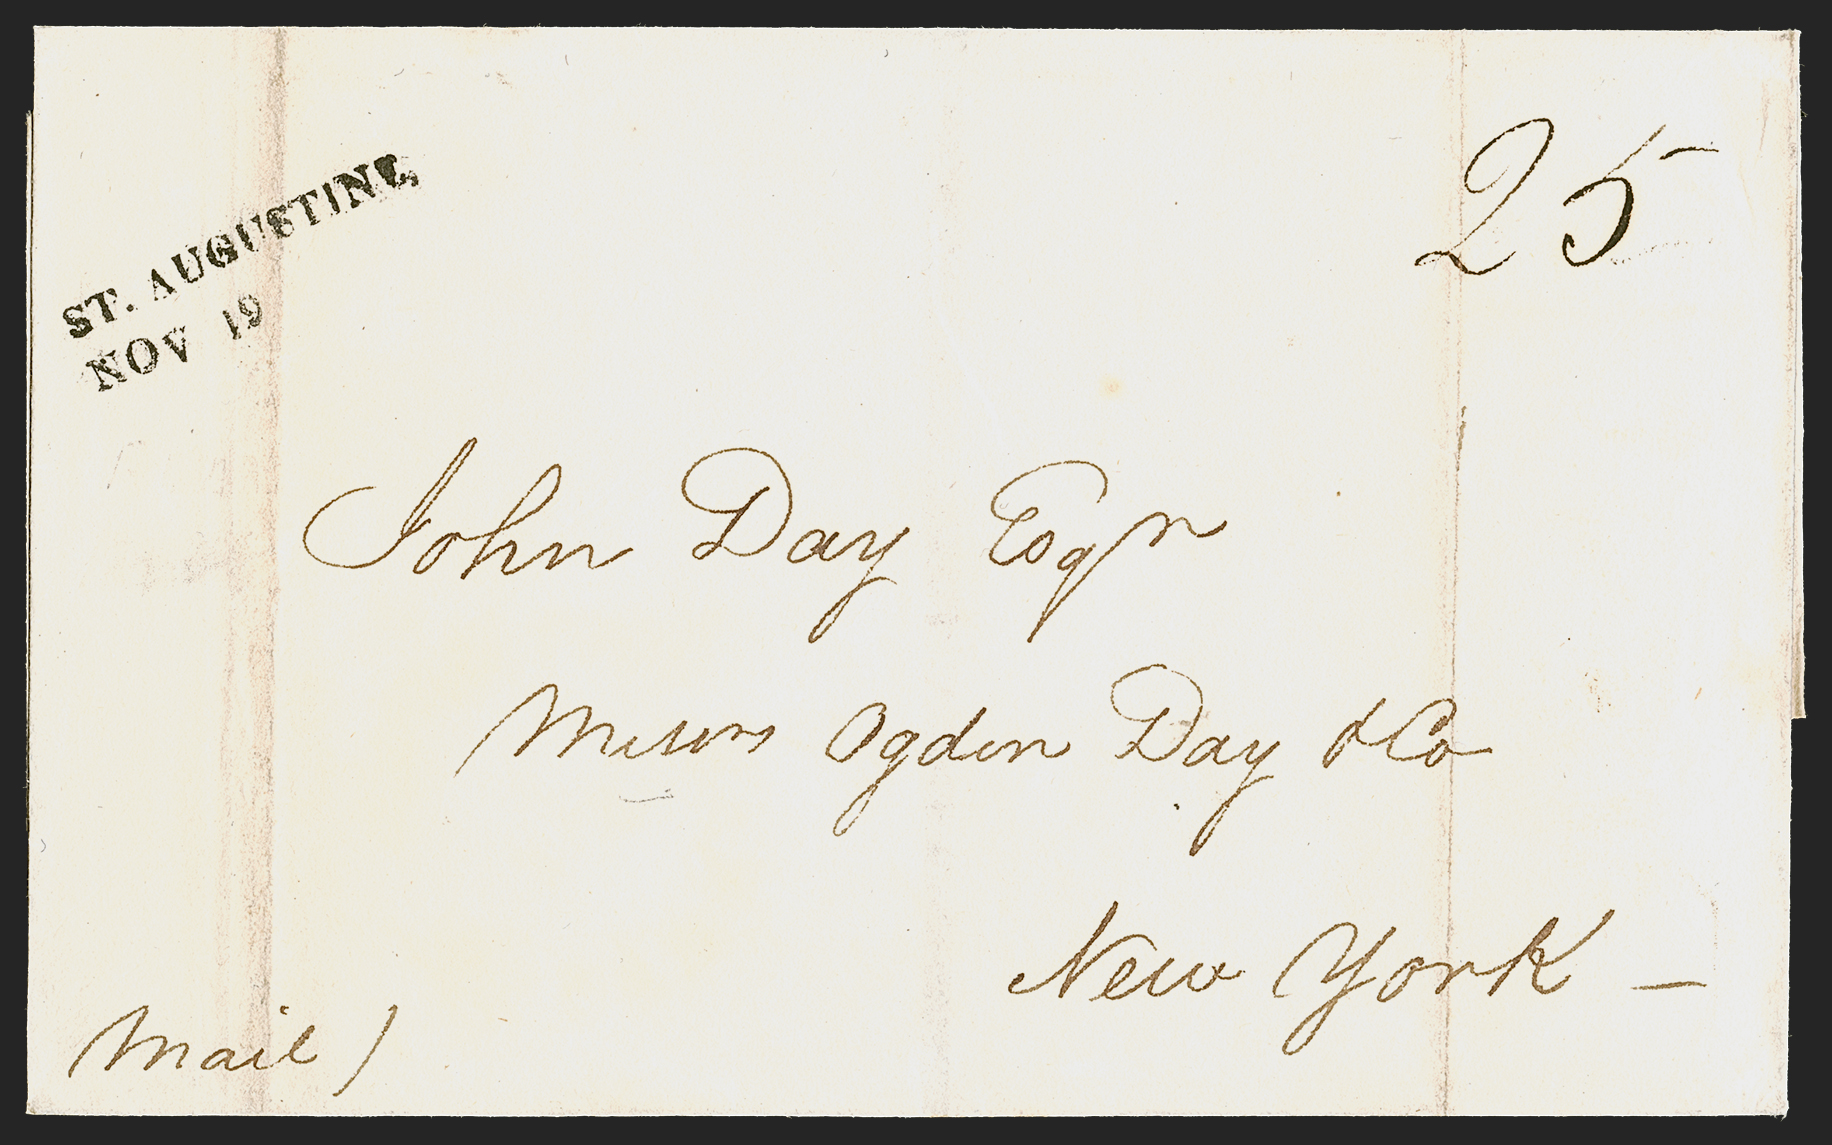 ST. AUGUSTINE,
NOV 19
25
John Day Esqr
Messrs Ogden Day & Co
New York —
Mail )